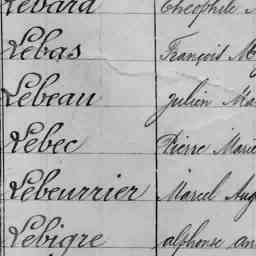 Lebard Théophile
Lebas François
Lebeau Julien
Lebec Pierre Marie
Lebeurrier Marcel
Lebigre alphonse